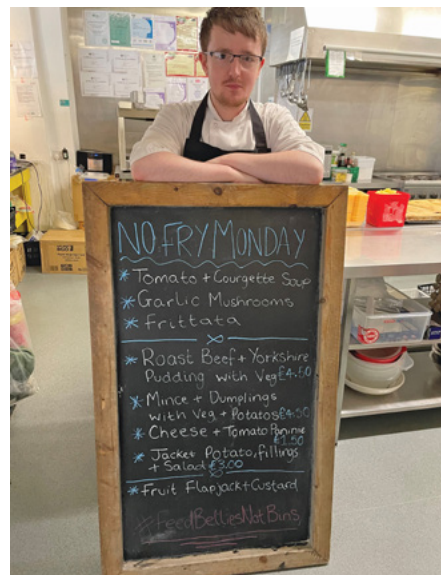 NO FRY MONDAY
* Tomato + Courgette Soup
* Garlic Mushrooms
* Frittata
* Roast Beef + Yorkshire
Pudding with Veg £4.50
* Mince + Dumplings
with Veg + Potatos £4.50
* Cheese + Tomato Paninie
£1.50
* Jacket Potato, fillings
+ Salad £3.00
* Fruit Flapjack + Custard
#FeedBelliesNotBins